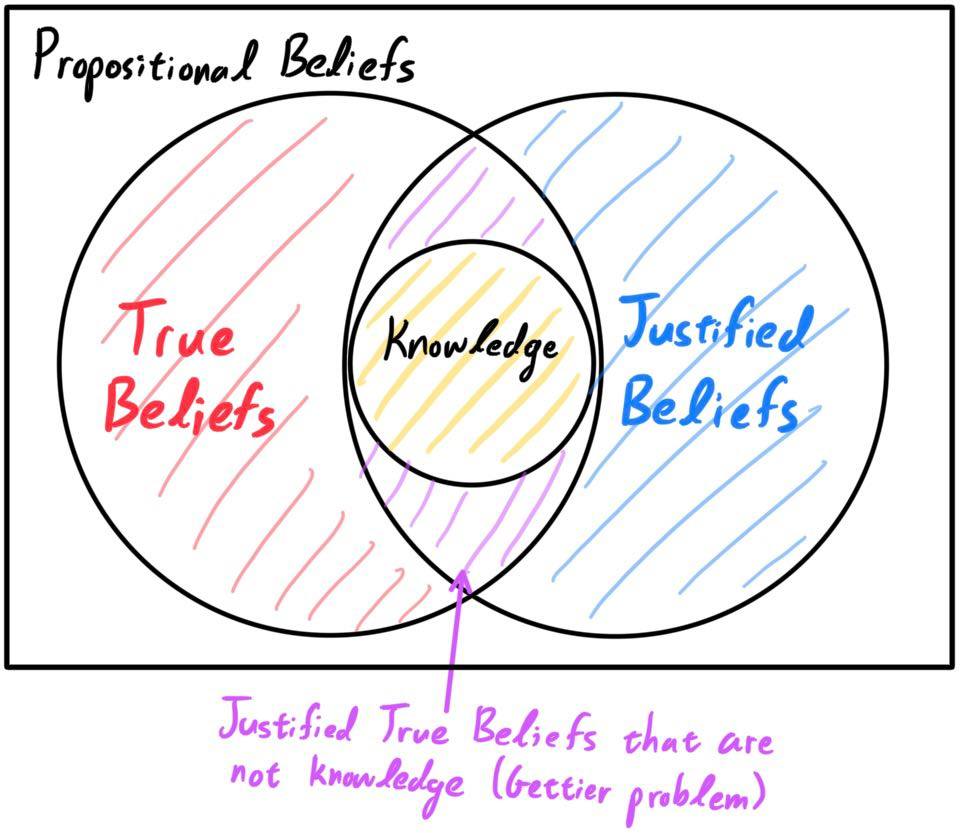 Propositional Beliefs
True
Beliefs
Knowledge
Justified
Beliefs
Justified True Beliefs that are
not knowledge (Gettier problem)